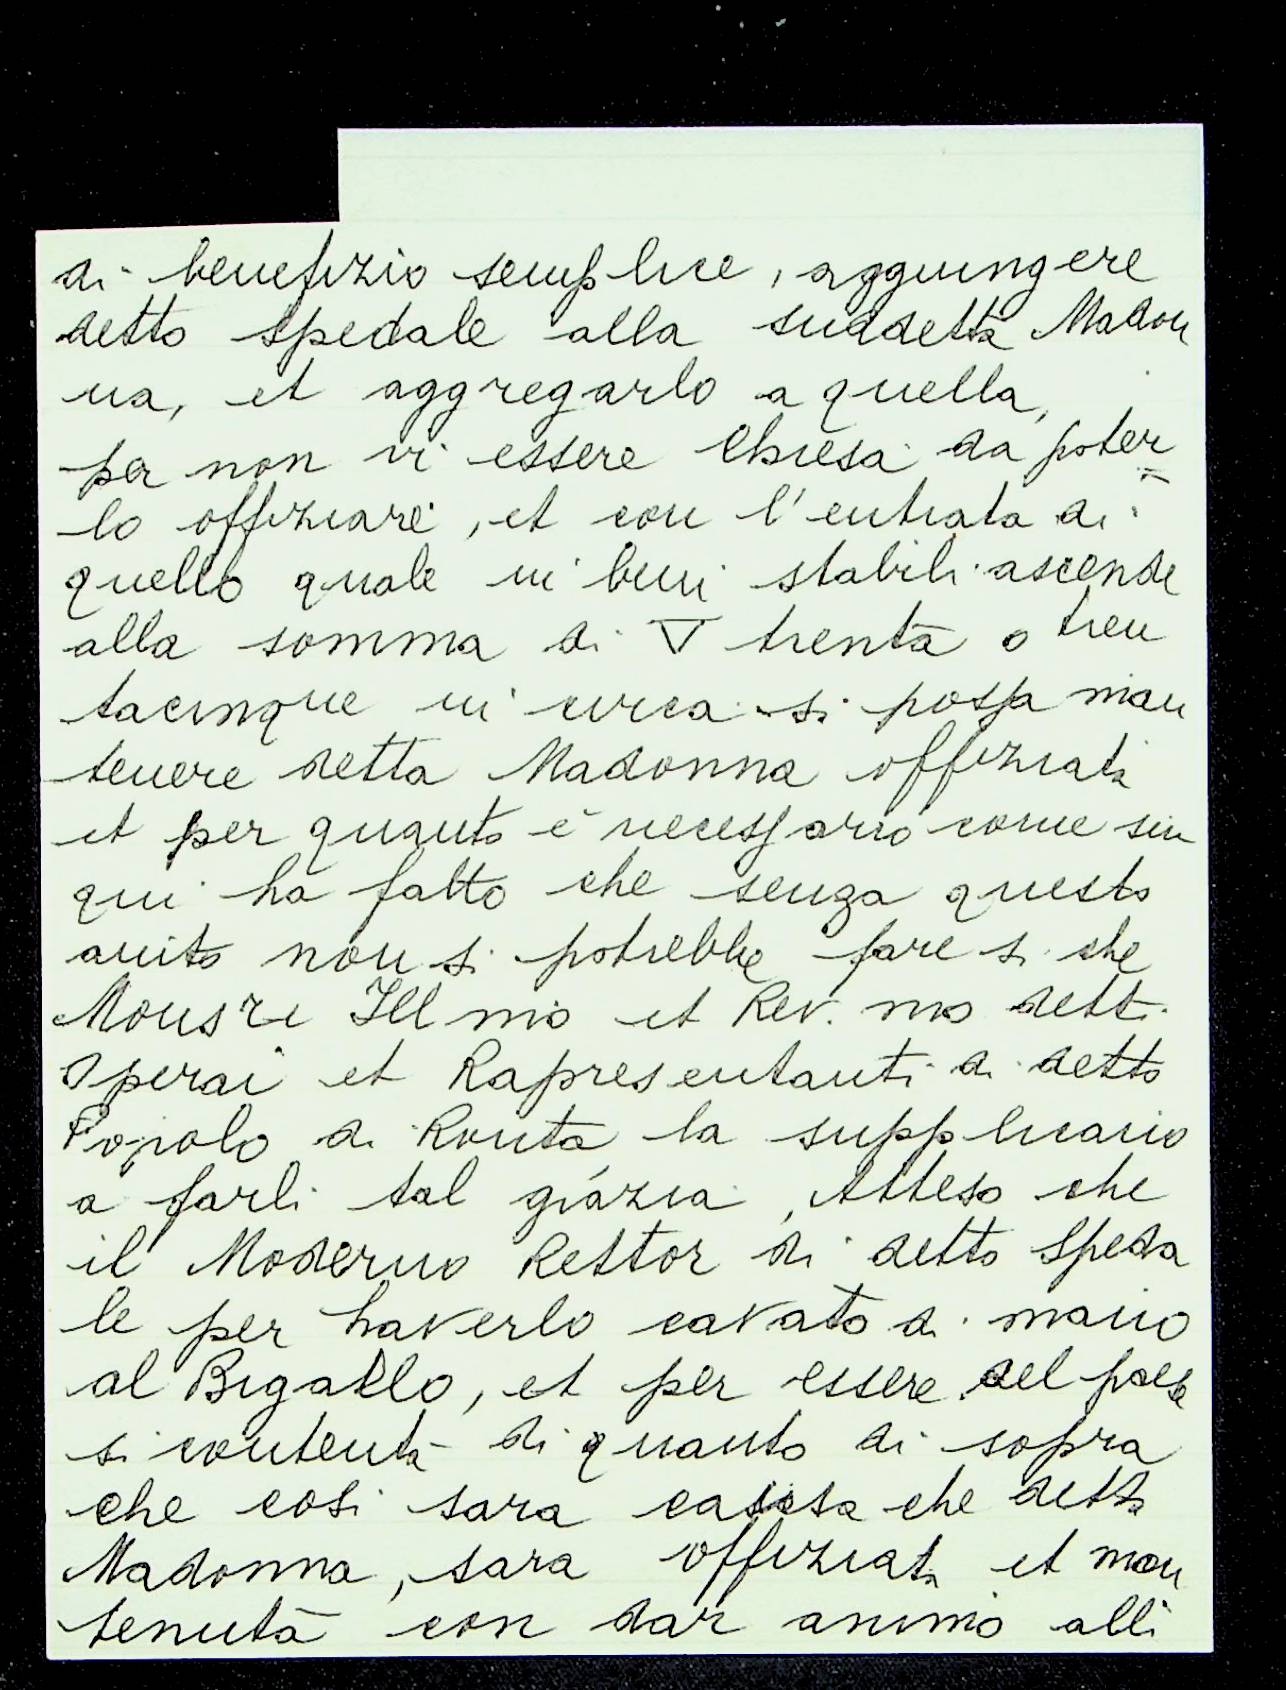 di benefizio semplice, aggiungere
detto spedale alla suddetta Madon
na, et aggregarlo a quella,
per non vi essere Chiesa da poter=
lo offiziare, et con l'entrata di
quello quale in beni stabili ascende
alla somma di ∇ trenta o tren
tacinque in circa si possa man
tenere detta Madonna offiziata
et per quanto è necessario come sin
qui ha fatto che senza questo
aiuto non si potrebbe fare si che
Monsre Illmo et Rev.mo detti
Operai et Rapresentanti di detto
Popolo di Ronta la supplicano
a farli tal grázia, Atteso che
il Moderno Rettor di detto Speda
le per haverlo cavato di mano
al Bigallo, et per essere del paese
si contenta di quanto di sopra
che cosi sara causa che detta
Madonna, sara offiziata et man
tenuta con dar animo alli